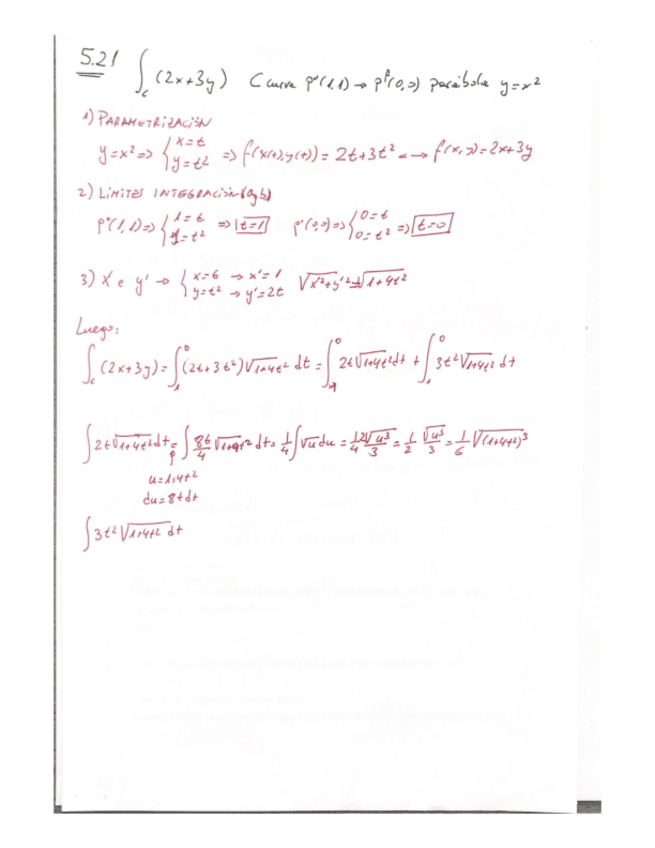 5.21 ∫_C (2x+3y) C curva Pº(1,1) → Pᶠ(0,0) parábola y=x²
1) PARAMETRIZACIÓN
y=x² => { x=t y=t² => f(x(t),y(t)) = 2t+3t² <-> f(x,y)=2x+3y
2) LIMITES INTEGRACIÓN (a,b)
Pº(1,1) => { 1=t 1=t² => t=1 Pº(0,0) => { 0=t 0=t² => t=0
3) X' e y' → { x=t → x'=1 y=t² → y'=2t √x'²+y'² = √1+4t²
Luego:
∫_C (2x+3y) = ∫₁⁰ (2t+3t²)√1+4t² dt = ∫₁⁰ 2t√1+4t² dt + ∫₁⁰ 3t²√1+4t² dt
∫2t√1+4t² dt = ∫ 8t/4 √1+4t² dt = 1/4 ∫√u du = 1/4 2√u³/3 = 1/2 √u³/3 = 1/6 √(1+4t²)³
u=1+4t²
du=8tdt
∫3t²√1+4t² dt